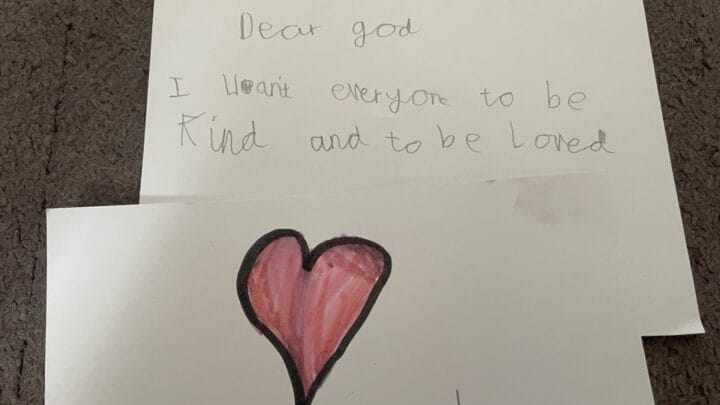 Dear god
I want everyone to be
Kind and to be Loved